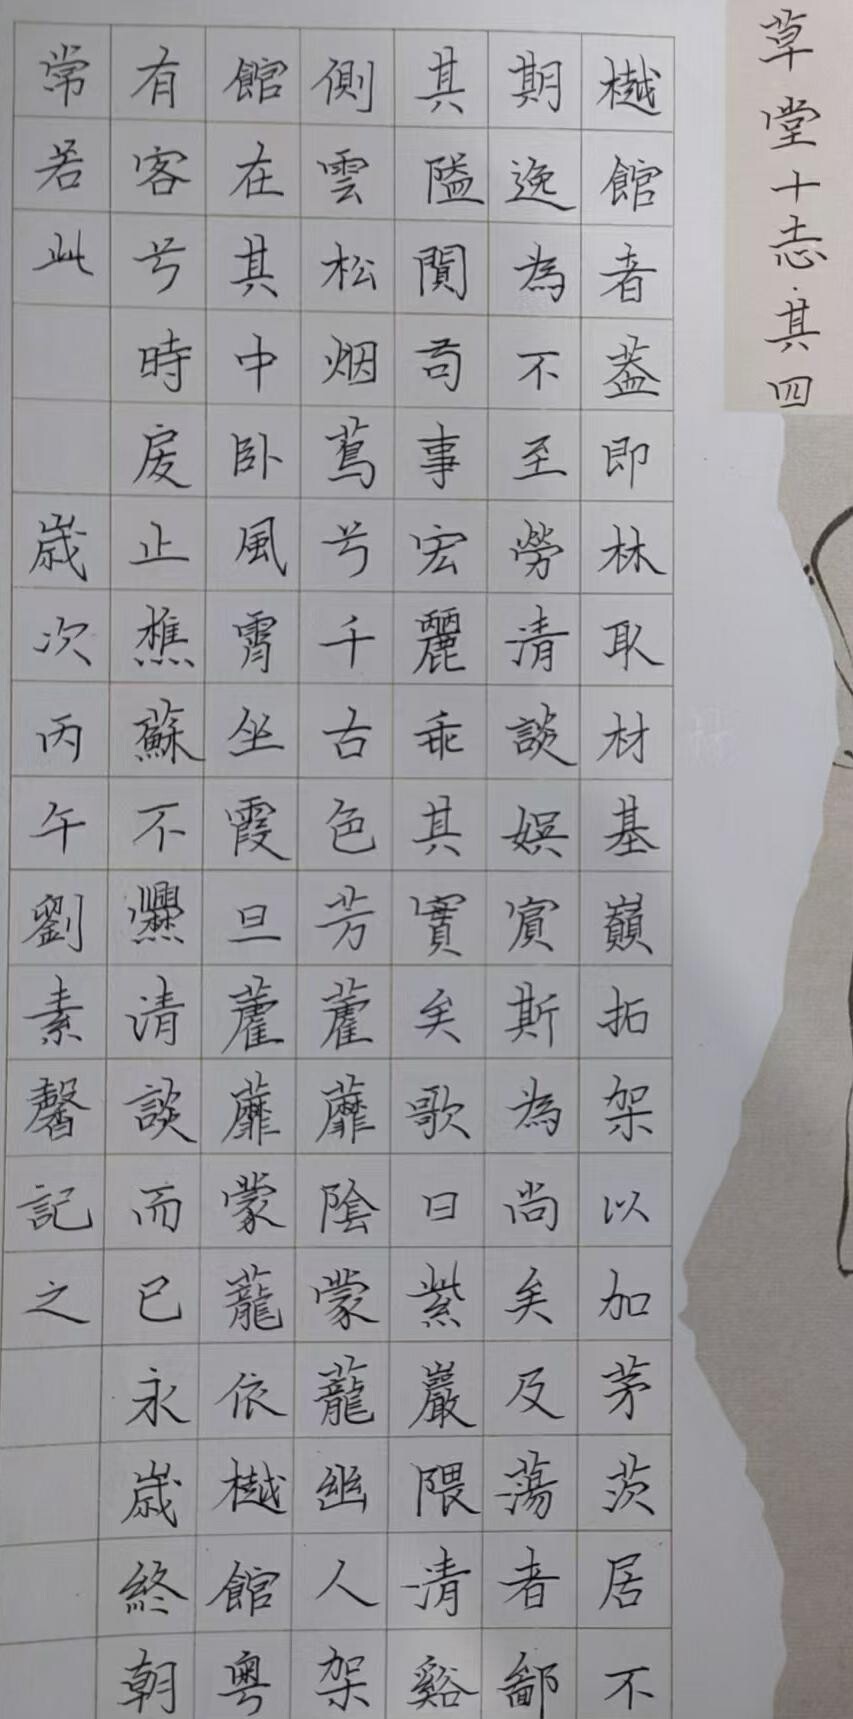 草堂十志·其四
樾館者蓋即林取材基巔拓架以加茅茨居不
期逸為不至勞清談娛賓斯為尚矣及蕩者鄙
其隘閴苟事宏麗乖其實矣歌曰紫巖隈清谿
側雲松烟蔦兮千古色芳藿蘼陰蒙蘢幽人架
館在其中卧風霄坐霞旦藿蘼蒙蘢依樾館粵
有客兮時戾止樵蘇不爨清談而已永歲終朝
常若此 歲次丙午劉素馨記之